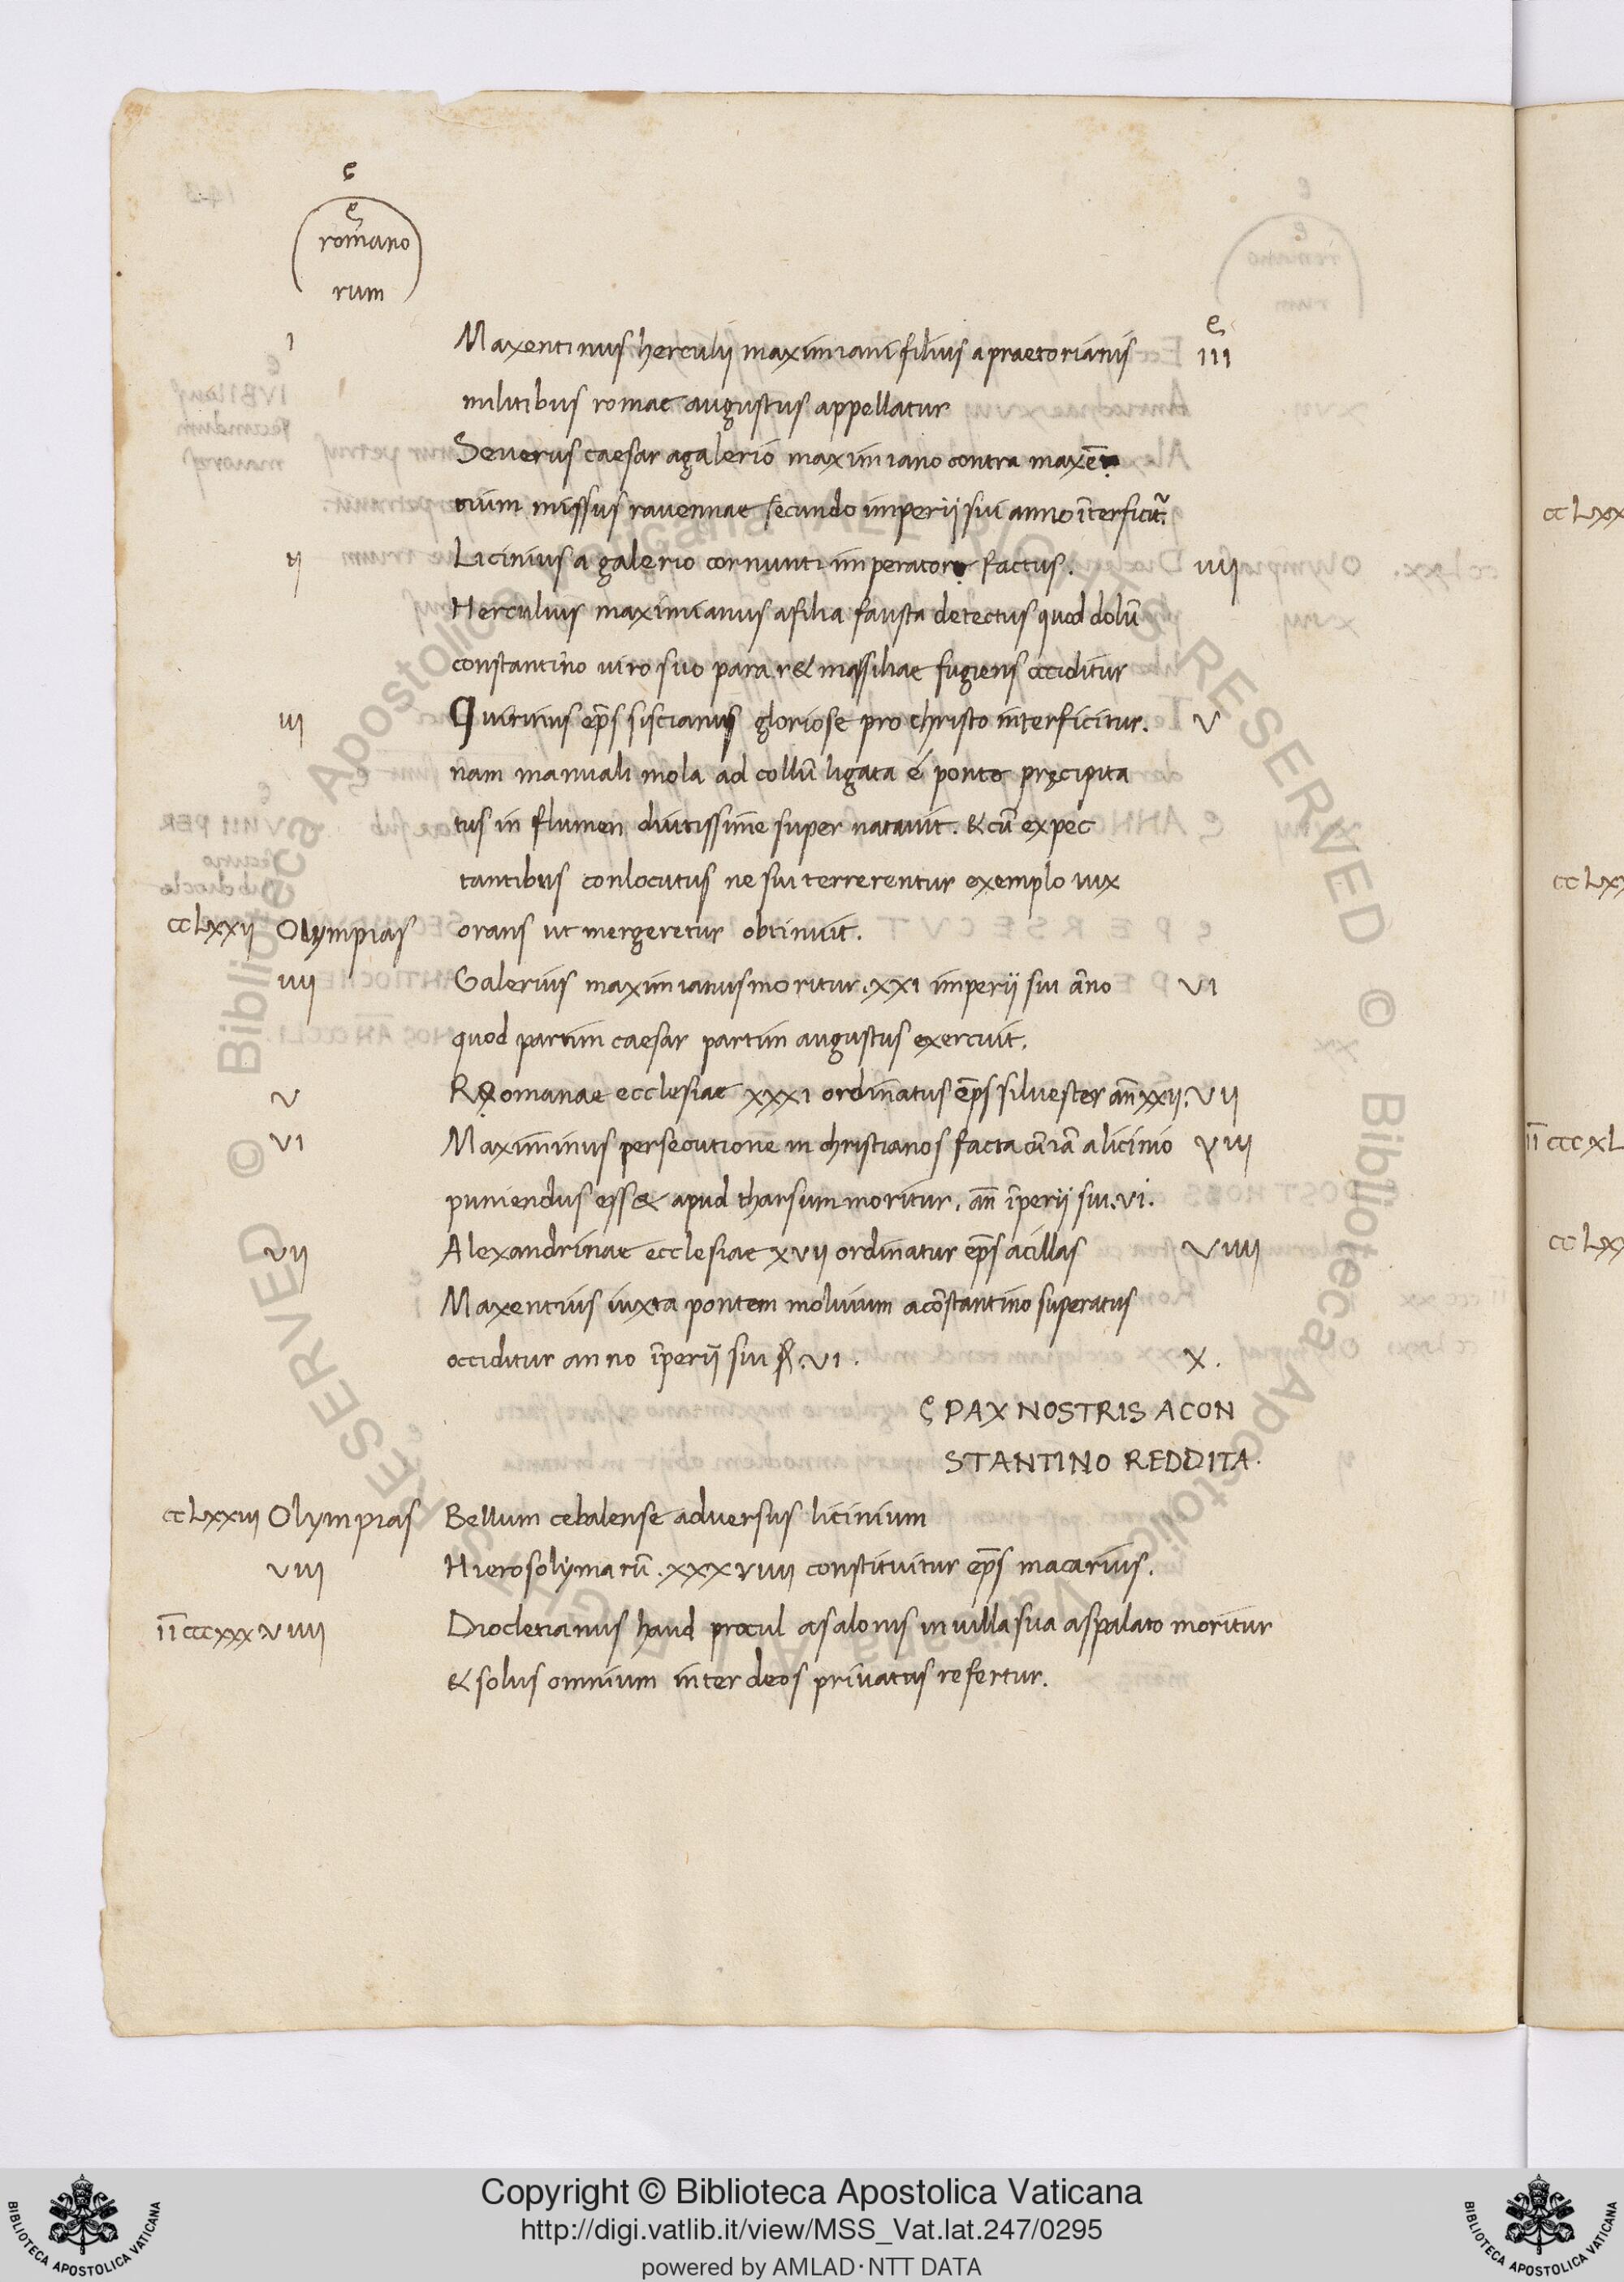 ę
ę
romano
rum
ę
I Maxentinus herculii maximiani filius a praetorianis III
militibus romae augustus appellatur
Severus caesar a galerio maximiano contra maxē
tium missus ravennae secundo imperii sui anno īterficit᷑.
II Licinius a galerio cornunti imperator factus. IIII
Herculius maximianus a filia fausta detectus quod dolū
constantino viro suo parar& massiliae fugiens occiditur
III Quirinus ep̄s siscianus gloriose pro christo interficitur. V
nam manuali mola ad collū ligata é ponte pręcipita
tus in flumen diutissime super natavit. & cū expec
tantibus conlocutus ne sui terrerentur exemplo vix
CCLXXII Olympias orans ut mergeretur obtinuit.
IIII Galerius maximianus moritur. XXI imperii sui āno VI
quod partim caesar partim augustus exercuit.
V Romanae ecclesiae XXXI ordinatus ep̄s silvester an̄ XXII. VII
VI Maximinus persecutione in christianos facta cū iā a licinio VIII
puniendus ess& apud tharsum moritur. an̄ īperii sui. VI.
VII Alexandrinae ecclesiae XVII ordinatur ep̄s acillas VIIII
Maxentius iuxta pontem molvium a cōstantino superatus
occiditur anno īperii sui VI. X.
ę PAX NOSTRIS A CON
STANTINO REDDITA.
CCLXXIII Olympias Bellum cebalense adversus licinium
VIII Hierosolymarū. XXXVIIII constituitur ep̄s macarius.
IĪCCCXXXVIIII Diocletianus haud procul a salonis in villa sua aspalato moritur
& solus omnium inter deos privatus refertur.
CCLXX
CCLXX
IĪCCCXL
CCLXX
© Biblioteca Apostolica Vaticana ALL RIGHTS RESERVED © Biblioteca Apostolica Vaticana ALL RIGHTS RESERVED
Copyright © Biblioteca Apostolica Vaticana
http://digi.vatlib.it/view/MSS_Vat.lat.247/0295
powered by AMLAD·NTT DATA
BIBLIOTECA APOSTOLICA VATICANA
BIBLIOTECA APOSTOLICA VATICANA